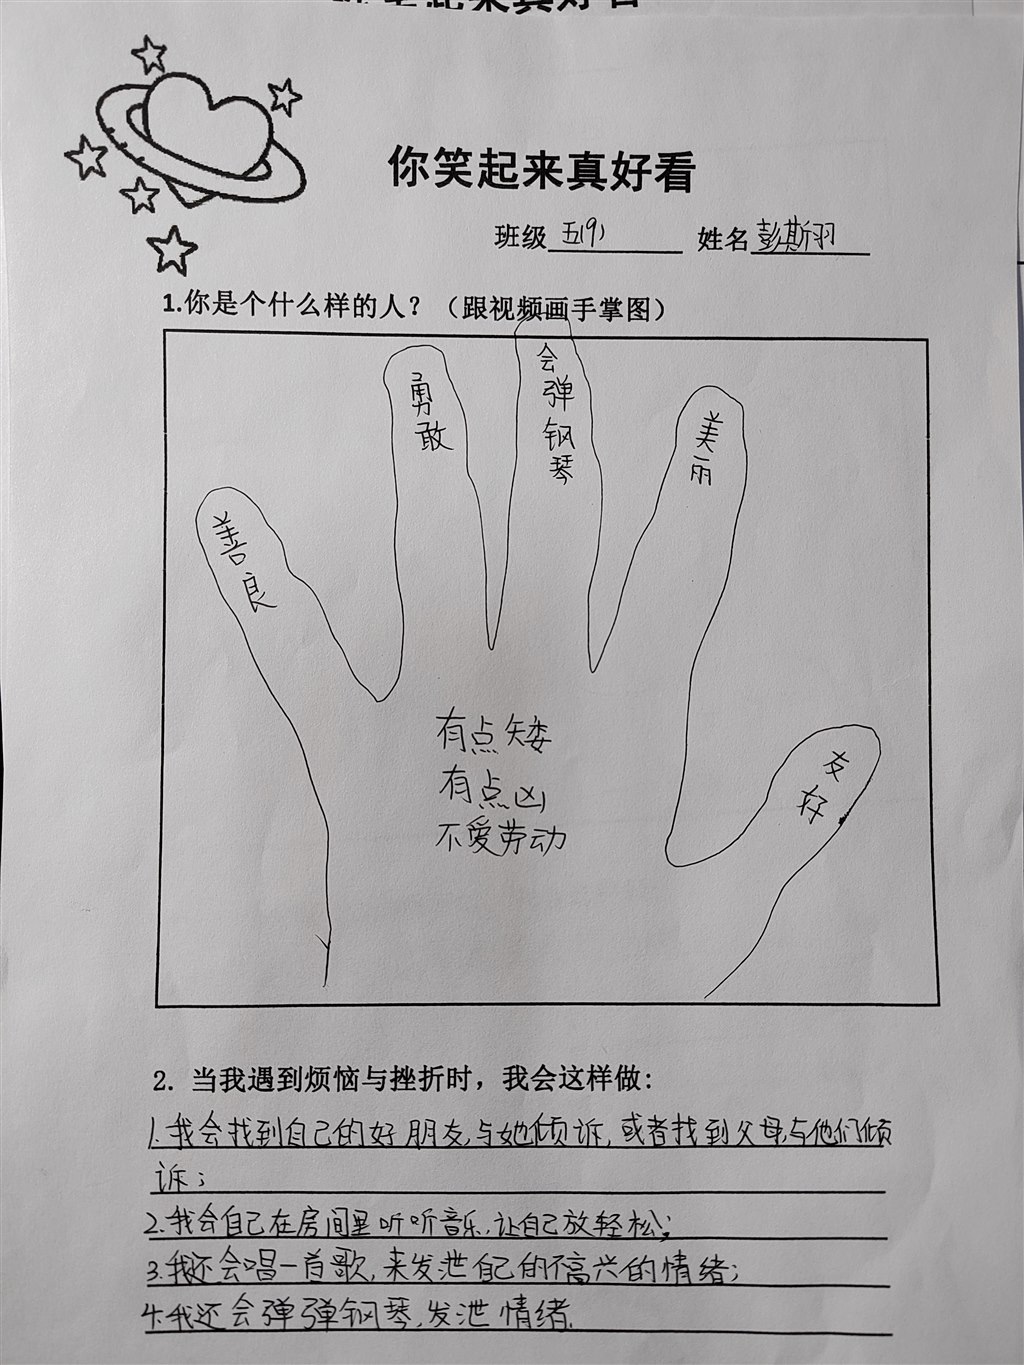 你笑起来真好看
班级 五(9) 姓名 彭斯羽
1.你是个什么样的人？（跟视频画手掌图）
善良
勇敢
会弹钢琴
美丽
友好
有点矮
有点凶
不爱劳动
2. 当我遇到烦恼与挫折时，我会这样做:
1.我会找到自己的好朋友,与她倾诉,或者找到父母与他们倾
诉;
2.我会自己在房间里听听音乐,让自己放轻松;
3.我还会唱一首歌,来发泄自己的不高兴的情绪;
4.我还会弹弹钢琴,发泄情绪.